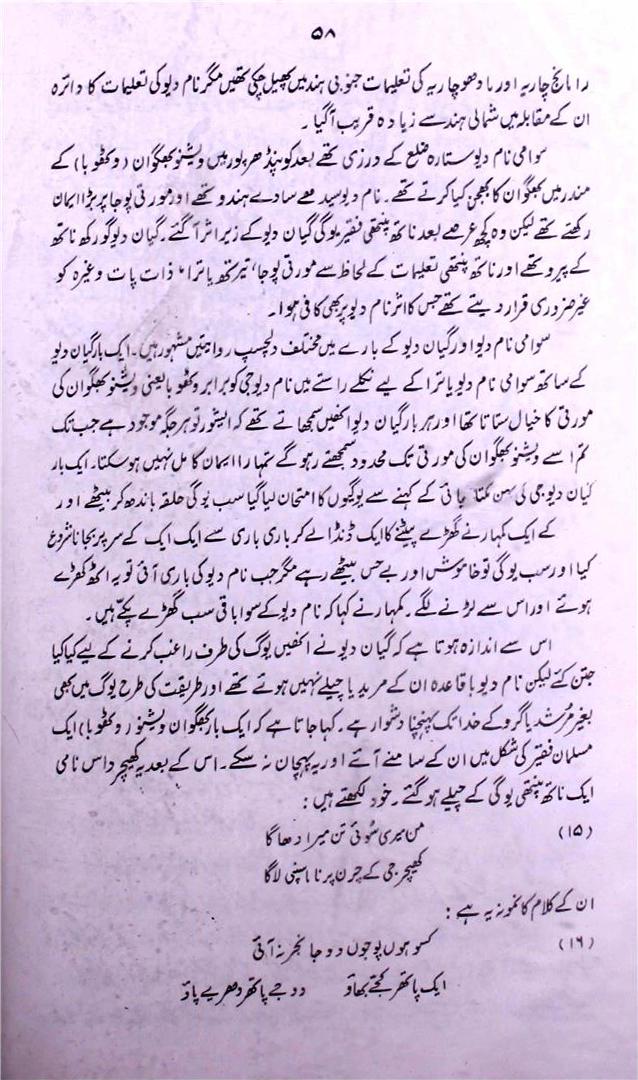 ۵۸
رامانج چاریہ اور مادھوچاریہ کی تعلیمات جنوبی ہند میں پھیل چکی تھیں مگر نام دیو کی تعلیمات کا دائرہ
ان کے مقابلہ میں شمالی ہند سے زیادہ قریب آگیا ۔
سوامی نام دیو ستارہ ضلع کے درزی تھے بعد کو پنڈھرپور میں ویشنو بھگوان (وٹھوبا) کے
مندر میں بھگوان کا بھجن کیا کرتے تھے ۔ نام دیو سیدھے سادے ہندو تھے اور مورتی پوجا پر بڑا ایمان
رکھتے تھے لیکن وہ کچھ عرصے بعد ناتھ پنتھی فقیر یوگی گیان دیو کے زیر اثر آگئے ۔ گیان دیو گورکھ ناتھ
کے پیرو تھے اور ناتھ پنتھی تعلیمات کے لحاظ سے مورتی پوجا، تیرتھ یاترا، ذات پات وغیرہ کو
غیر ضروری قرار دیتے تھے جس کا اثر نام دیو پر بھی کافی ہوا ۔
سوامی نام دیو اور گیان دیو کے بارے میں مختلف دلچسپ روایتیں مشہور ہیں ۔ ایک بار گیان دیو
کے ساتھ سوامی نام دیو یاترا کے لیے نکلے راستے میں نام دیو جی کو برابر وٹھوبا یعنی ویشنو بھگوان کی
مورتی کا خیال ستاتا تھا اور ہر بار گیان دیو انھیں سمجھاتے تھے کہ ایشور تو ہر جگہ موجود ہے جب تک
تم اسے ویشنو بھگوان کی مورتی تک محدود سمجھتے رہوگے تمہارا ایمان کامل نہیں ہوسکتا ۔ ایک بار
گیان دیو جی کی بہن مکتا بائی کے کہنے سے یوگیوں کا امتحان لیا گیا سب یوگی حلقہ باندھ کر بیٹھے اور
کے ایک کمہار نے گھڑے پیٹنے کا ایک ڈنڈا لے کر باری باری سے ایک ایک کے سر پر بجانا شروع
کیا اور سب یوگی تو خاموش اور بے حس بیٹھے رہے مگر جب نام دیو کی باری آئی تو یہ اٹھ کھڑے
ہوئے اور اس سے لڑنے لگے ۔ کمہار نے کہا کہ نام دیو کے سوا باقی سب گھڑے پکے ہیں ۔
اس سے اندازہ ہوتا ہے کہ گیان دیو نے انھیں یوگ کی طرف راغب کرنے کے لیے کیا کیا
جتن کئے لیکن نام دیو باقاعدہ ان کے مرید یا چیلے نہیں ہوئے تھے اور طریقت کی طرح یوگ میں بھی
بغیر مرشد یا گرو کے خدا تک پہنچنا دشوار ہے ۔ کہا جاتا ہے کہ ایک بار بھگوان ویشنو (وٹھوبا) ایک
مسلمان فقیر کی شکل میں ان کے سامنے آئے اور یہ پہچان نہ سکے ۔ اس کے بعد یہ کھیچر داس نامی
ایک ناتھ پنتھی یوگی کے چیلے ہوگئے ۔ خود لکھتے ہیں :
(۱۵) من میری سُوئی تن میرا دھاگا
کھیچر جی کے چرن پر ناما سپنی لاگا
ان کے کلام کا نمونہ یہ ہے :
(۱۶) کسو ہوں پوجوں دوجا نجر نہ آئی
ایک پاتھر کجتے بھاؤ دوجے پاتھر دھریے پاؤ